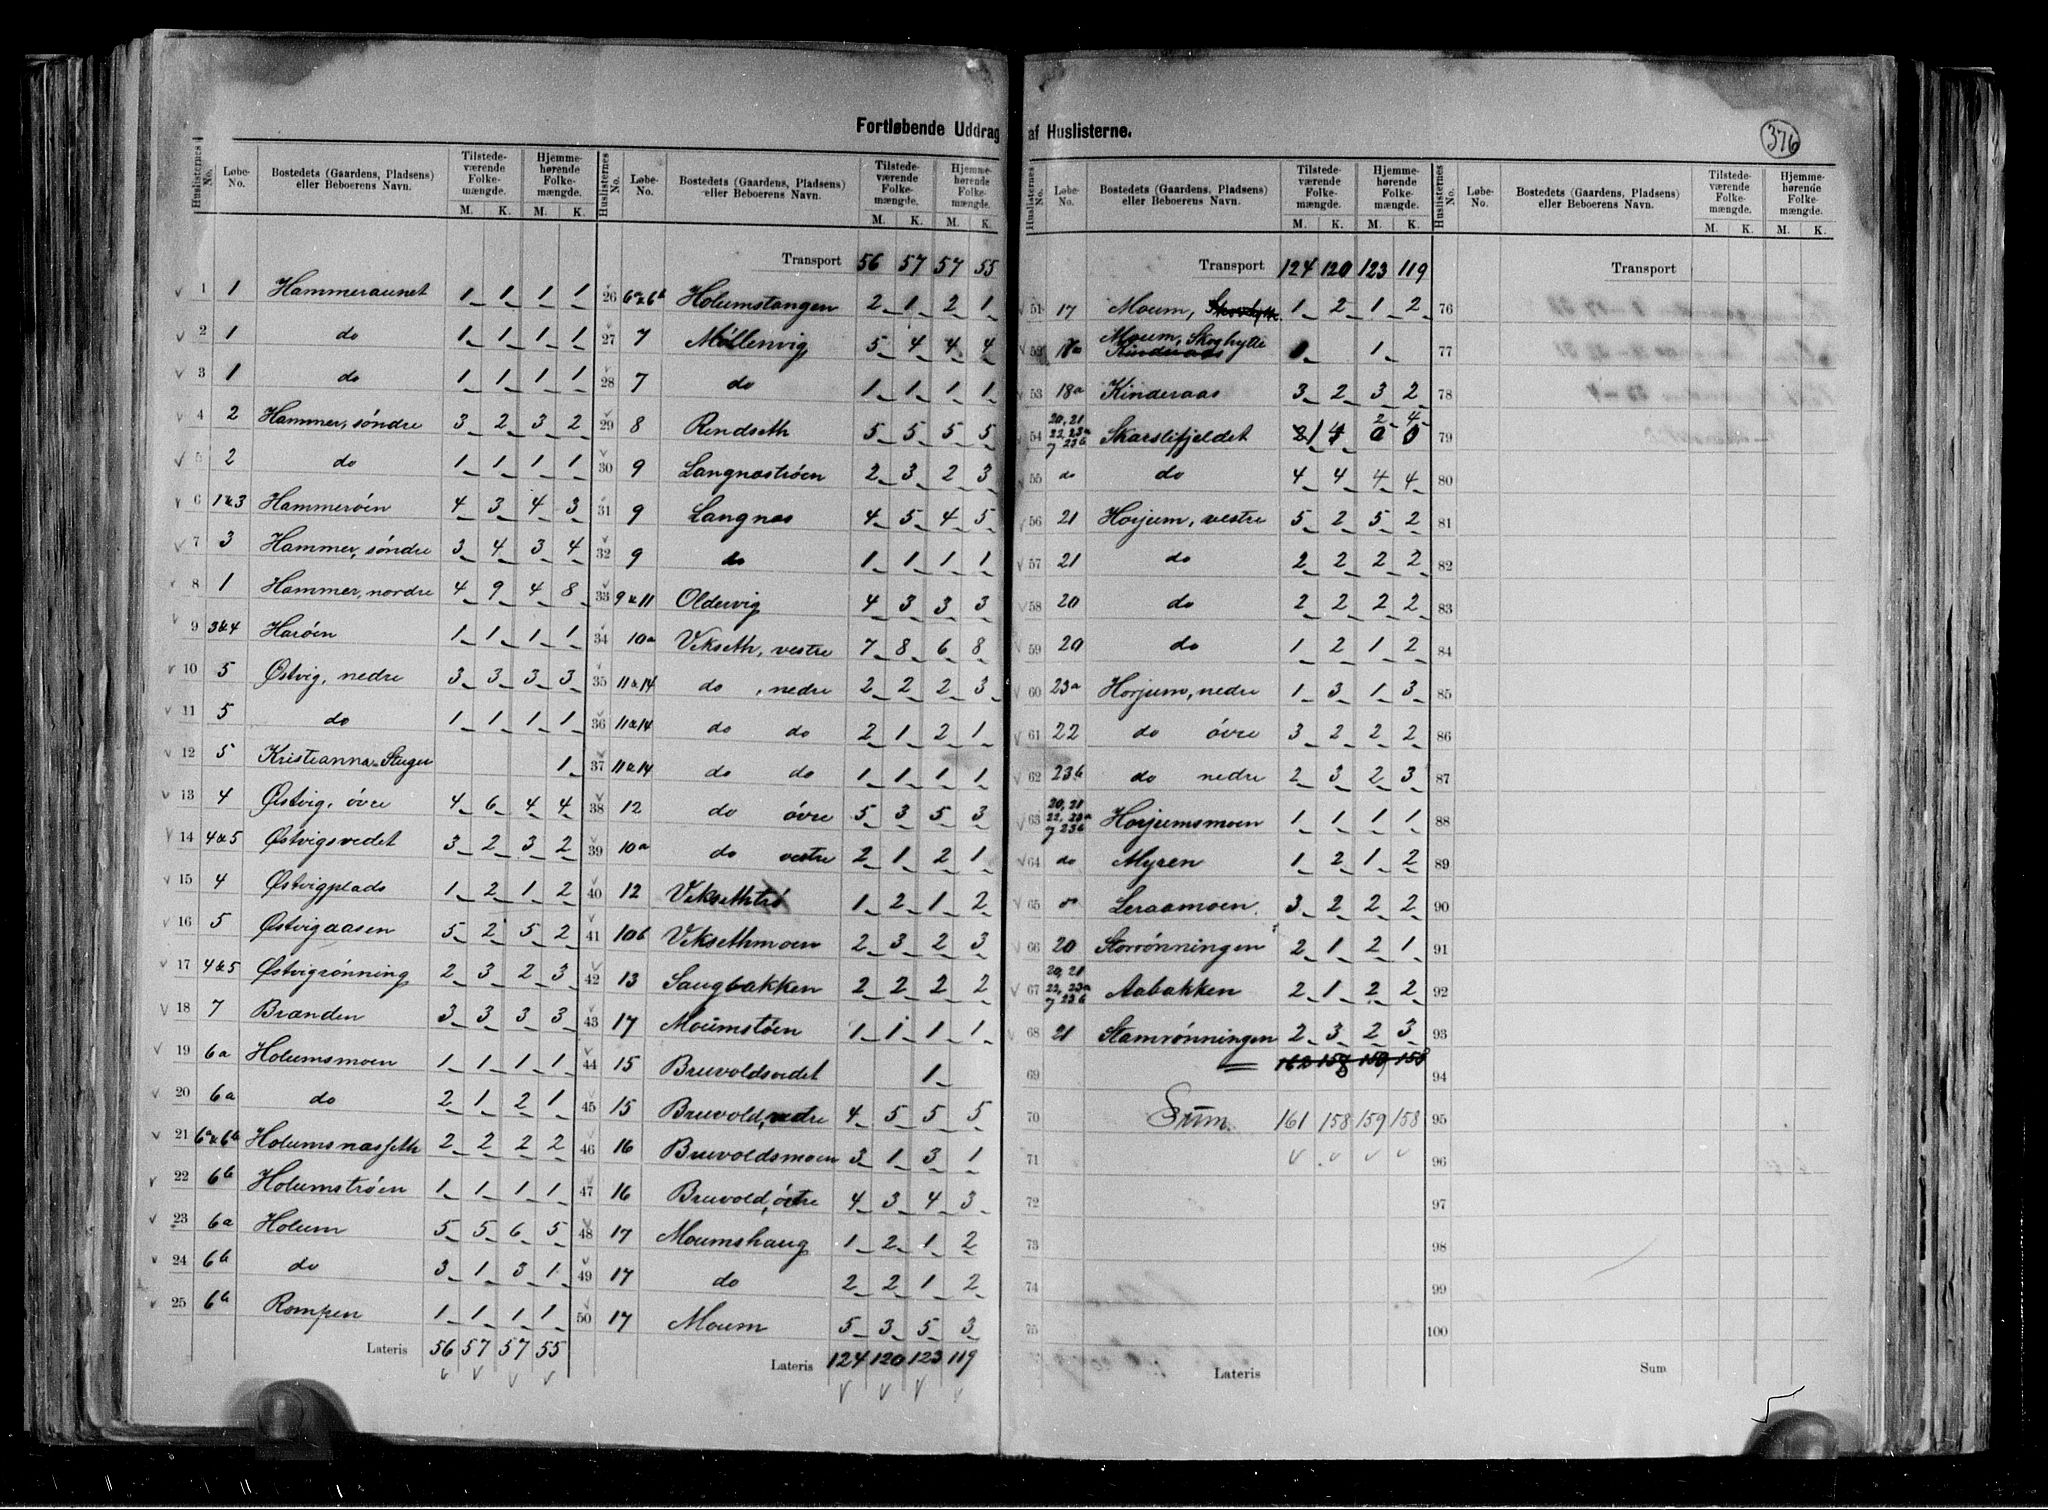 Fortløbende Uddrag af Huslisterne.
376
Huslisternes No. | Løbe-No. | Bostedets (Gaardens, Pladsens) eller Beboerens Navn. | Tilstedeværende Folkemængde. M. K. | Hjemmehørende Folkemængde. M. K.
1 | 1 | Hammeraunet | 1 | 1 | 1 | 1
2 | 1 | do | 1 | 1 | 1 | 1
3 | 1 | do | 1 | 1 | 1 | 1
4 | 2 | Hammer, søndre | 3 | 2 | 3 | 2
5 | 2 | do | 1 | 1 | 1 | 1
6 | 1&3 | Hammerøien | 4 | 3 | 4 | 3
7 | 3 | Hammer, søndre | 3 | 4 | 3 | 4
8 | 1 | Hammer, nordre | 4 | 9 | 4 | 8
9 | 3&4 | Harøin | 1 | 1 | 1 | 1
10 | 5 | Østvig, nedre | 3 | 3 | 3 | 3
11 | 5 | do | 1 | 1 | 1 | 1
12 | 5 | Kristianna | 1
13 | 4 | Østvig, övre | 4 | 6 | 4 | 4
14 | 4&5 | Østvigsvedet | 3 | 2 | 3 | 2
15 | 4 | Østvigplads | 1 | 2 | 1 | 2
16 | 5 | Østvigaasen | 5 | 2 | 5 | 2
17 | 4&5 | Østvigrønning | 2 | 3 | 2 | 3
18 | 7 | Brænden | 3 | 3 | 3 | 3
19 | 6a | Holumsmoen | 1 | 1 | 1 | 1
20 | 6a | do | 2 | 1 | 2 | 1
21 | 6a&6b | Holumsnæsseth | 2 | 2 | 2 | 2
22 | 6b | Holumstrøen | 1 | 1 | 1 | 1
23 | 6a | Holum | 5 | 5 | 6 | 5
24 | 6b | do | 3 | 1 | 3 | 1
25 | 6b | Rompen | 1 | 1 | 1 | 1
Lateris | 56 | 57 | 57 | 55
Huslisternes No. | Løbe-No. | Bostedets (Gaardens, Pladsens) eller Beboerens Navn. | Tilstedeværende Folkemængde. M. K. | Hjemmehørende Folkemængde. M. K.
Transport | 56 | 57 | 57 | 55
26 | 6a&6b | Holumstangen | 2 | 1 | 2 | 1
27 | 7 | Møllenvig | 5 | 4 | 4 | 4
28 | 7 | do | 1 | 1 | 1 | 1
29 | 8 | Rendseth | 5 | 5 | 5 | 5
30 | 9 | Langnastrøen | 2 | 3 | 2 | 3
31 | 9 | Langnas | 4 | 5 | 4 | 5
32 | 9 | do | 1 | 1 | 1 | 1
33 | 9&11 | Oldervig | 4 | 3 | 3 | 3
34 | 10a | Vekseth, vestre | 7 | 8 | 6 | 8
35 | 11&14 | do, nedre | 2 | 2 | 2 | 3
36 | 11&14 | do do | 2 | 1 | 2 | 1
37 | 11&14 | do do | 1 | 1 | 1 | 1
38 | 12 | do övre | 5 | 3 | 5 | 3
39 | 10a | do vestre | 2 | 1 | 2 | 1
40 | 12 | Veksethtrø | 1 | 2 | 1 | 2
41 | 10b | Veksethmoen | 2 | 3 | 2 | 3
42 | 13 | Saugbakken | 2 | 2 | 2 | 2
43 | 17 | Moumstøen | 1 | 1 | 1 | 1
44 | 15 | Bruvoldsvedet | 1
45 | 15 | Bruvold, nedre | 4 | 5 | 5 | 5
46 | 16 | Bruvoldsmoen | 3 | 1 | 3 | 1
47 | 16 | Bruvold, östre | 4 | 3 | 4 | 3
48 | 17 | Moumshaug | 1 | 2 | 1 | 2
49 | 17 | do | 2 | 2 | 1 | 2
50 | 17 | Moum | 5 | 3 | 5 | 3
Lateris | 124 | 120 | 123 | 119
Huslisternes No. | Løbe-No. | Bostedets (Gaardens, Pladsens) eller Beboerens Navn. | Tilstedeværende Folkemængde. M. K. | Hjemmehørende Folkemængde. M. K.
Transport | 124 | 120 | 123 | 119
51 | 17 | Moum, | 1 | 2 | 1 | 2
52 | Moum, Skoghytte Kinderaas | 1
53 | 18a | Kinderaas | 3 | 2 | 3 | 2
54 | 20, 21 22, 23a og 23b | Skarslifjeldet | 2 4
55 | do | do | 4 | 4 | 4 | 4
56 | 21 | Horjum, vestre | 5 | 2 | 5 | 2
57 | 21 | do | 2 | 2 | 2 | 2
58 | 20 | do | 2 | 2 | 2 | 2
59 | 20 | do | 1 | 2 | 1 | 2
60 | 23a | Horjum, nedre | 1 | 3 | 1 | 3
61 | 22 | do övre | 3 | 2 | 2 | 2
62 | 23b | do nedre | 2 | 3 | 2 | 3
63 | 20, 21 22, 23a og 23b | Horjumsmoen | 1 | 1 | 1 | 1
64 | do | Myren | 1 | 2 | 1 | 2
65 | do | Leraamoen | 3 | 2 | 2 | 2
66 | 20 | Storrønningen | 2 | 1 | 2 | 1
67 | 20, 21 22, 23a og 23b | Aabakken | 2 | 1 | 2 | 2
68 | 21 | Stamrønningen | 2 | 3 | 2 | 3
69
70 | Sum | 161 | 158 | 159 | 158
71
72
73
74
75
Lateris
Huslisternes No. | Løbe-No. | Bostedets (Gaardens, Pladsens) eller Beboerens Navn. | Tilstedeværende Folkemængde. M. K. | Hjemmehørende Folkemængde. M. K.
Transport
76
77
78
79
80
81
82
83
84
85
86
87
88
89
90
91
92
93
94
95
96
97
98
99
100
Sum